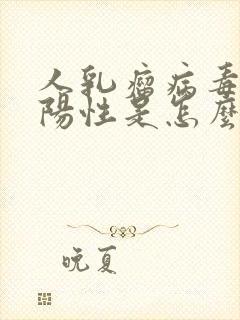 人乳瘤病毒
陽性是怎麽
晚夏